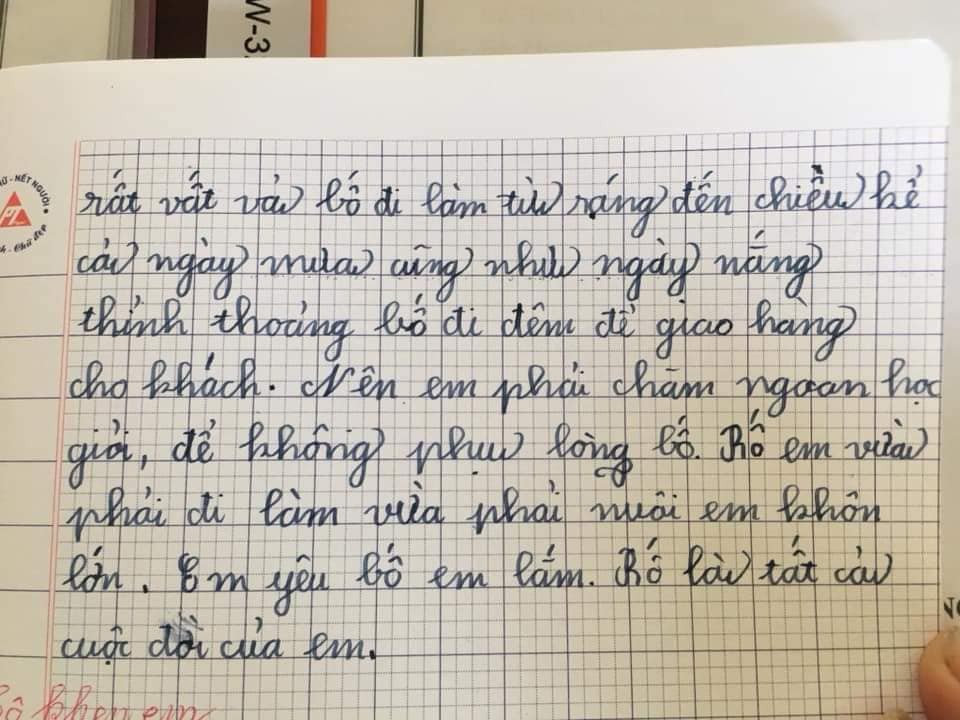 W-3
Ữ - NẾT NGƯỜI
PL
Chữ đẹp
rất vất vả bố đi làm từ ráng đến chiều kể
cả ngày mưa cũng như ngày nắng
thỉnh thoảng bố đi đêm để giao hàng
cho khách. Nên em phải chăm ngoan học
giỏi, để không phụ lòng bố. Bố em vừa
phải đi làm vừa phải nuôi em khôn
lớn. Em yêu bố em lắm. Bố là tất cả
cuộc đời của em.
khen em